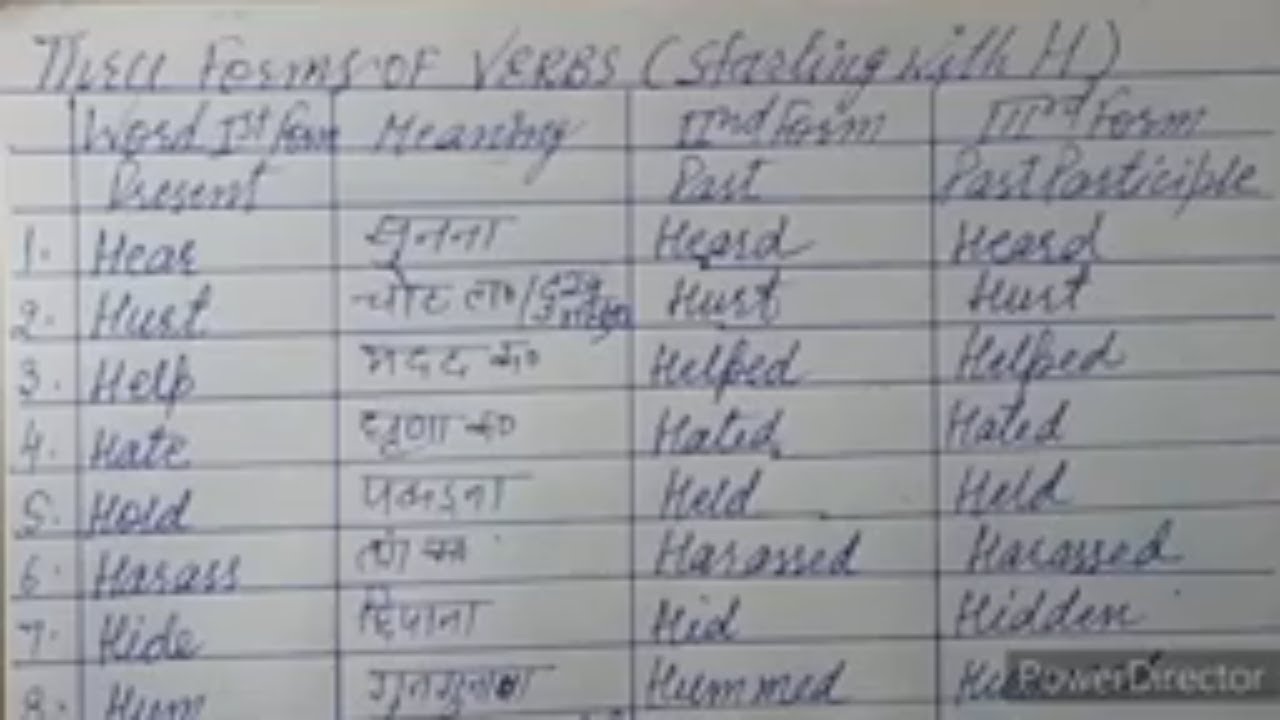 Three Forms OF VERBS (Starting with H)
Word Ist form Meaning IInd Form IIIrd Form
Present Past Past Participle
1. Hear सुनना Heard Heard
2. Hurt चोट ल० / Hurt Hurt
3. Help मदद क० Helped Helped
4. Hate घृणा क० Hated Hated
5. Hold पकडना Held Held
6. Harass Harassed Harassed
7. Hide छिपाना Hid Hidden
8. Hum गुनगुनाना Hummed
PowerDirector